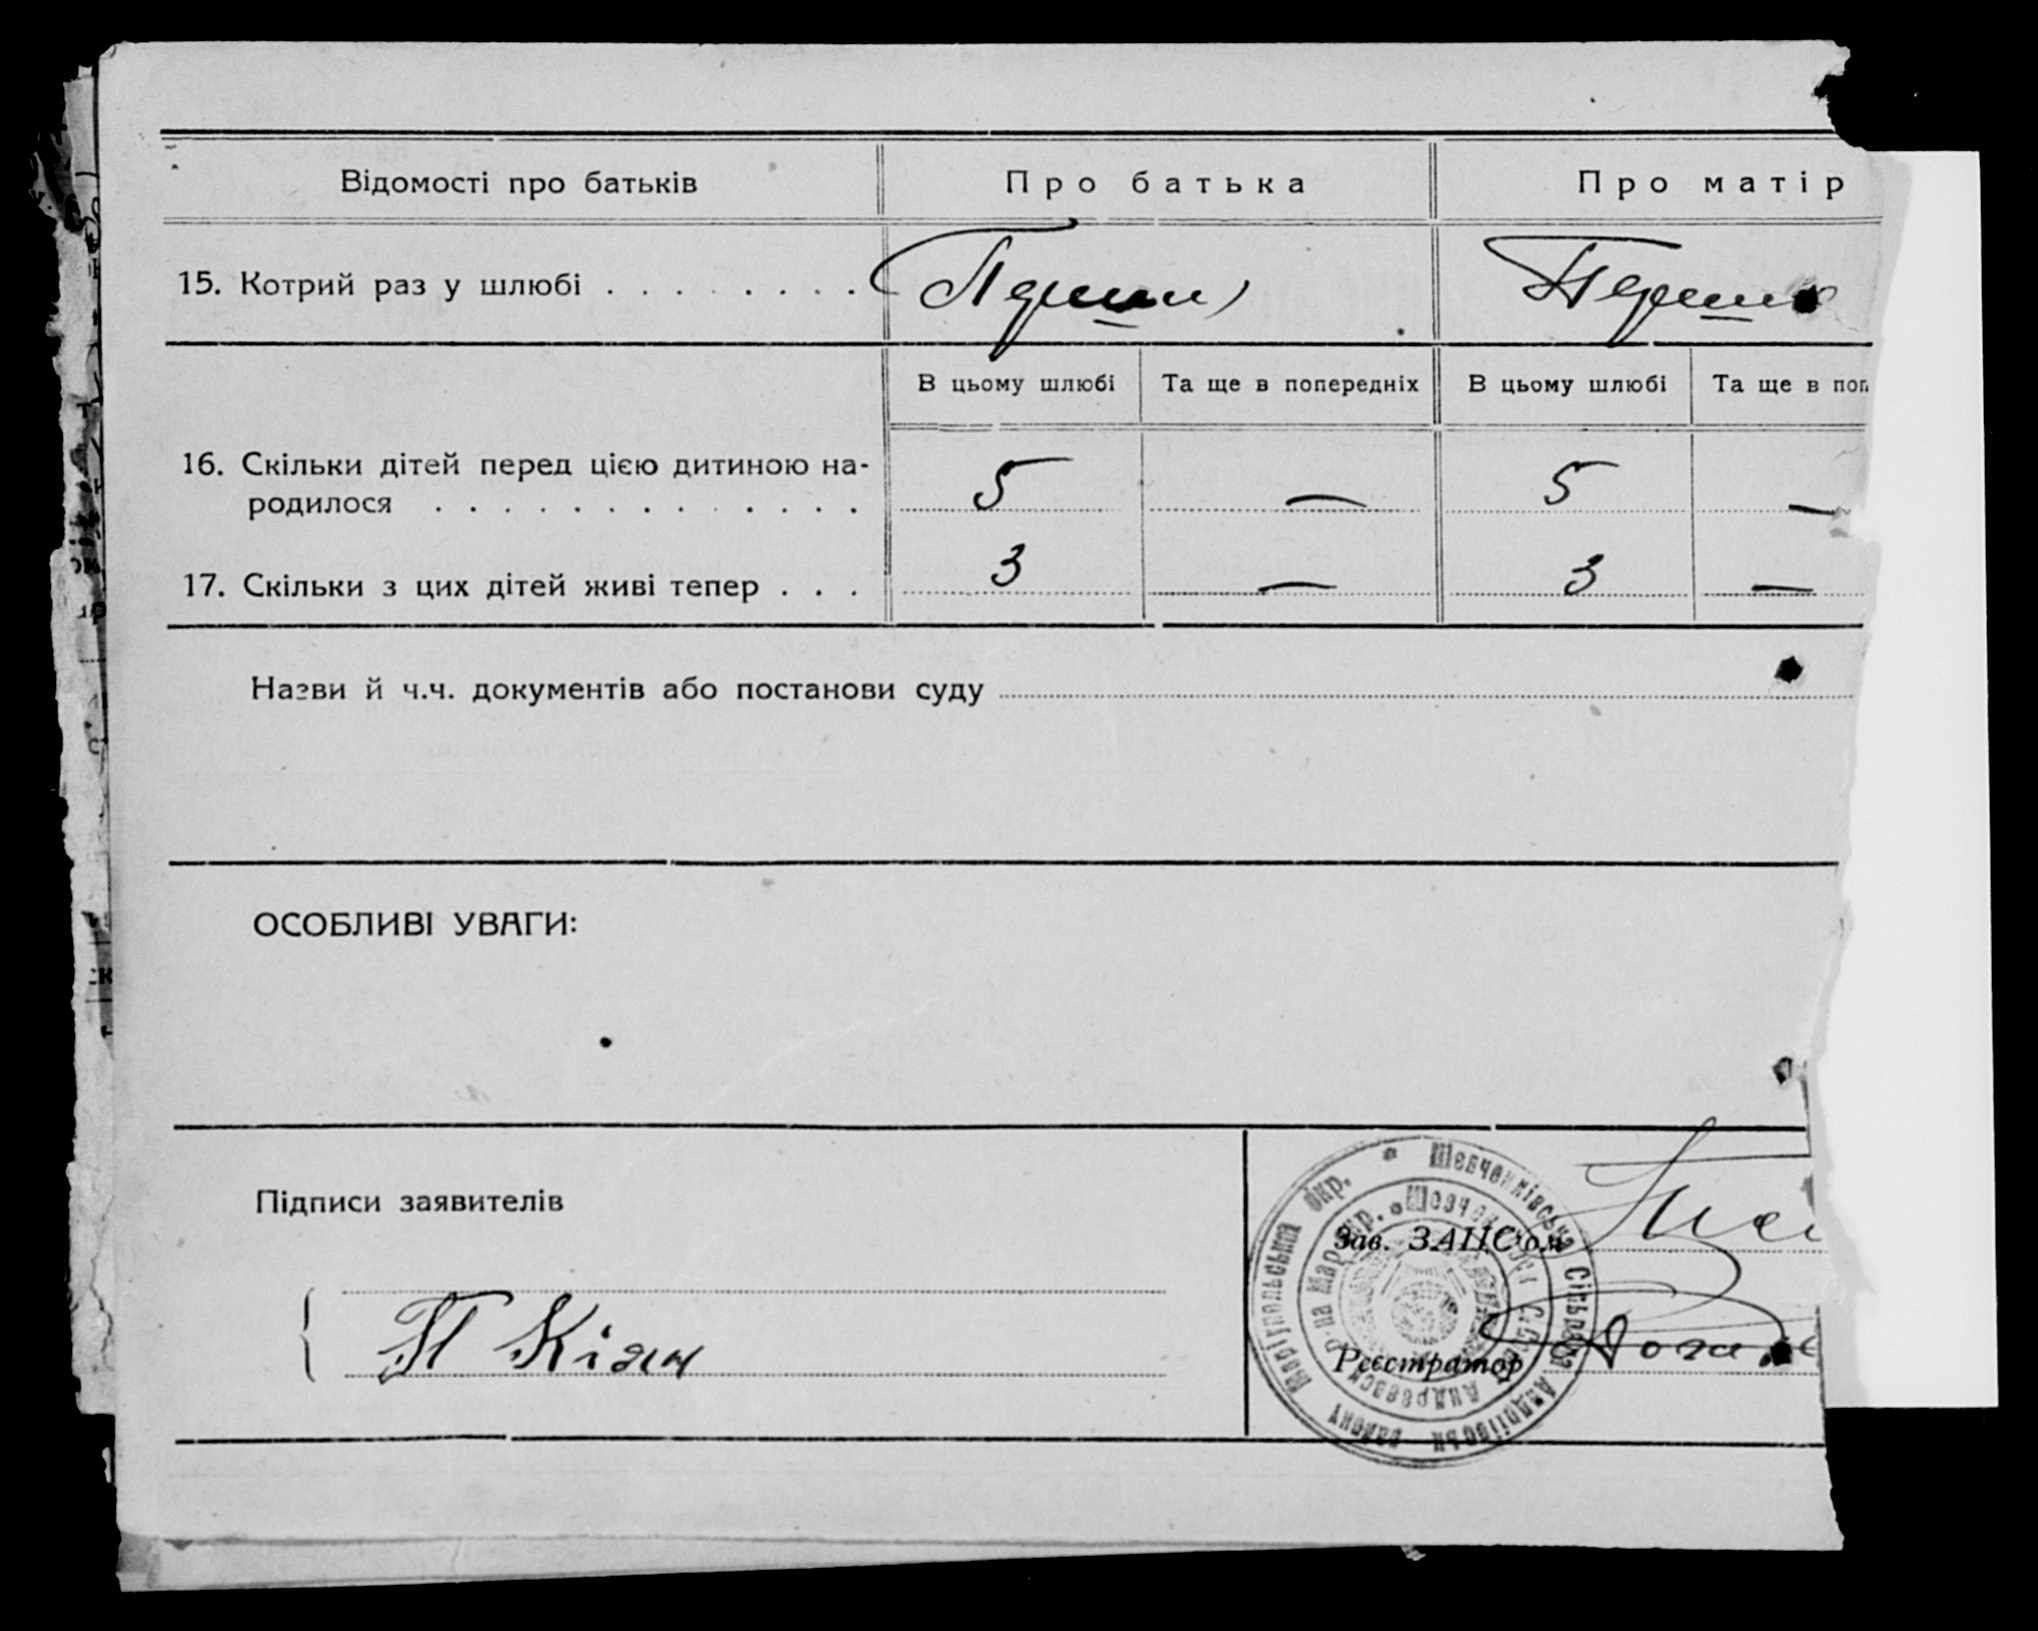 Відомості про батьків
Про батька
Про матір
15. Котрий раз у шлюбі
В цьому шлюбі Та ще в попередніх В цьому шлюбі Та ще в поп
16. Скільки дітей перед цією дитиною на-
родилося 5 — 5 —
17. Скільки з цих дітей живі тепер 3 — 3 —
Назви й ч.ч. документів або постанови суду
ОСОБЛИВІ УВАГИ:
Підписи заявителів
Зав. ЗАПС'ом
Реєстратор
Маріупольська окр. * Шевченківська Сільрада
район